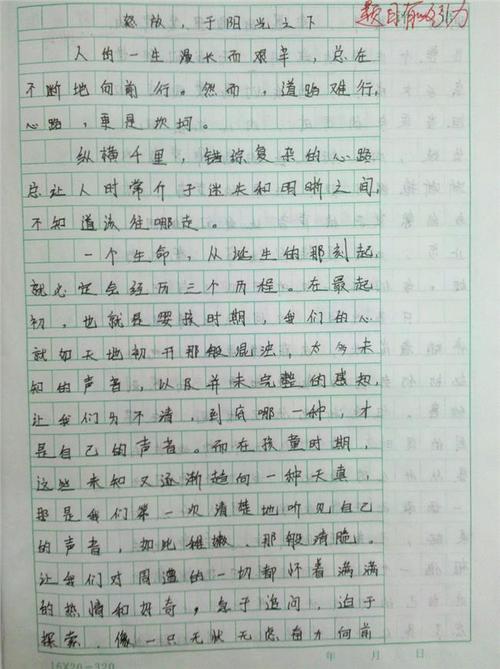 怒放,于阳光之下
题目有吸引力
人的一生漫长而艰辛,总在
不断地向前行。然而,道路难行,
心路,更是坎坷。
纵横千里,错综复杂的心路
总让人时常介于迷失和明晰之间,
不知道该往哪走。
一个生命,从诞生的那刻起,
就注定会经历三个历程。在最起
初,也就是婴孩时期,我们的心
就如天地初开那般混浊,太多未
知的声音,以及并未完整的感知,
让我们分不清,到底哪一种,才
是自己的声音。而在孩童时期,
这些未知又逐渐趋向一种天真,
那是我们第一次清楚地听见自己
的声音,如此稚嫩,那般清脆。
让我们对周遭的一切都怀着满满
的热情和好奇,急于追问,迫于
探索,像一只无忧无虑奋力向前
16X20=320
年 月 日